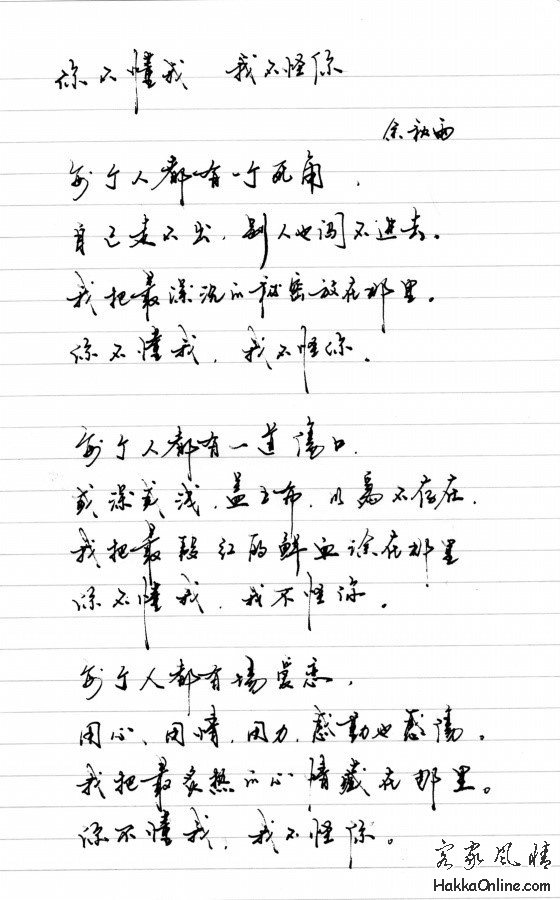 你不懂我 我不怪你
余秋雨
每个人都有一个死角，
自己走不出，别人也闯不进去。
我把最深沉的秘密放在那里。
你不懂我，我不怪你。
每个人都有一道伤口，
或深或浅，盖上布，以为不存在。
我把最殷红的鲜血涂在那里
你不懂我，我不怪你。
每个人都有一场爱恋，
用心、用情、用力，感动也感伤。
我把最炙热的心情藏在那里。
你不懂我，我不怪你。
客家风情
HakkaOnline.com